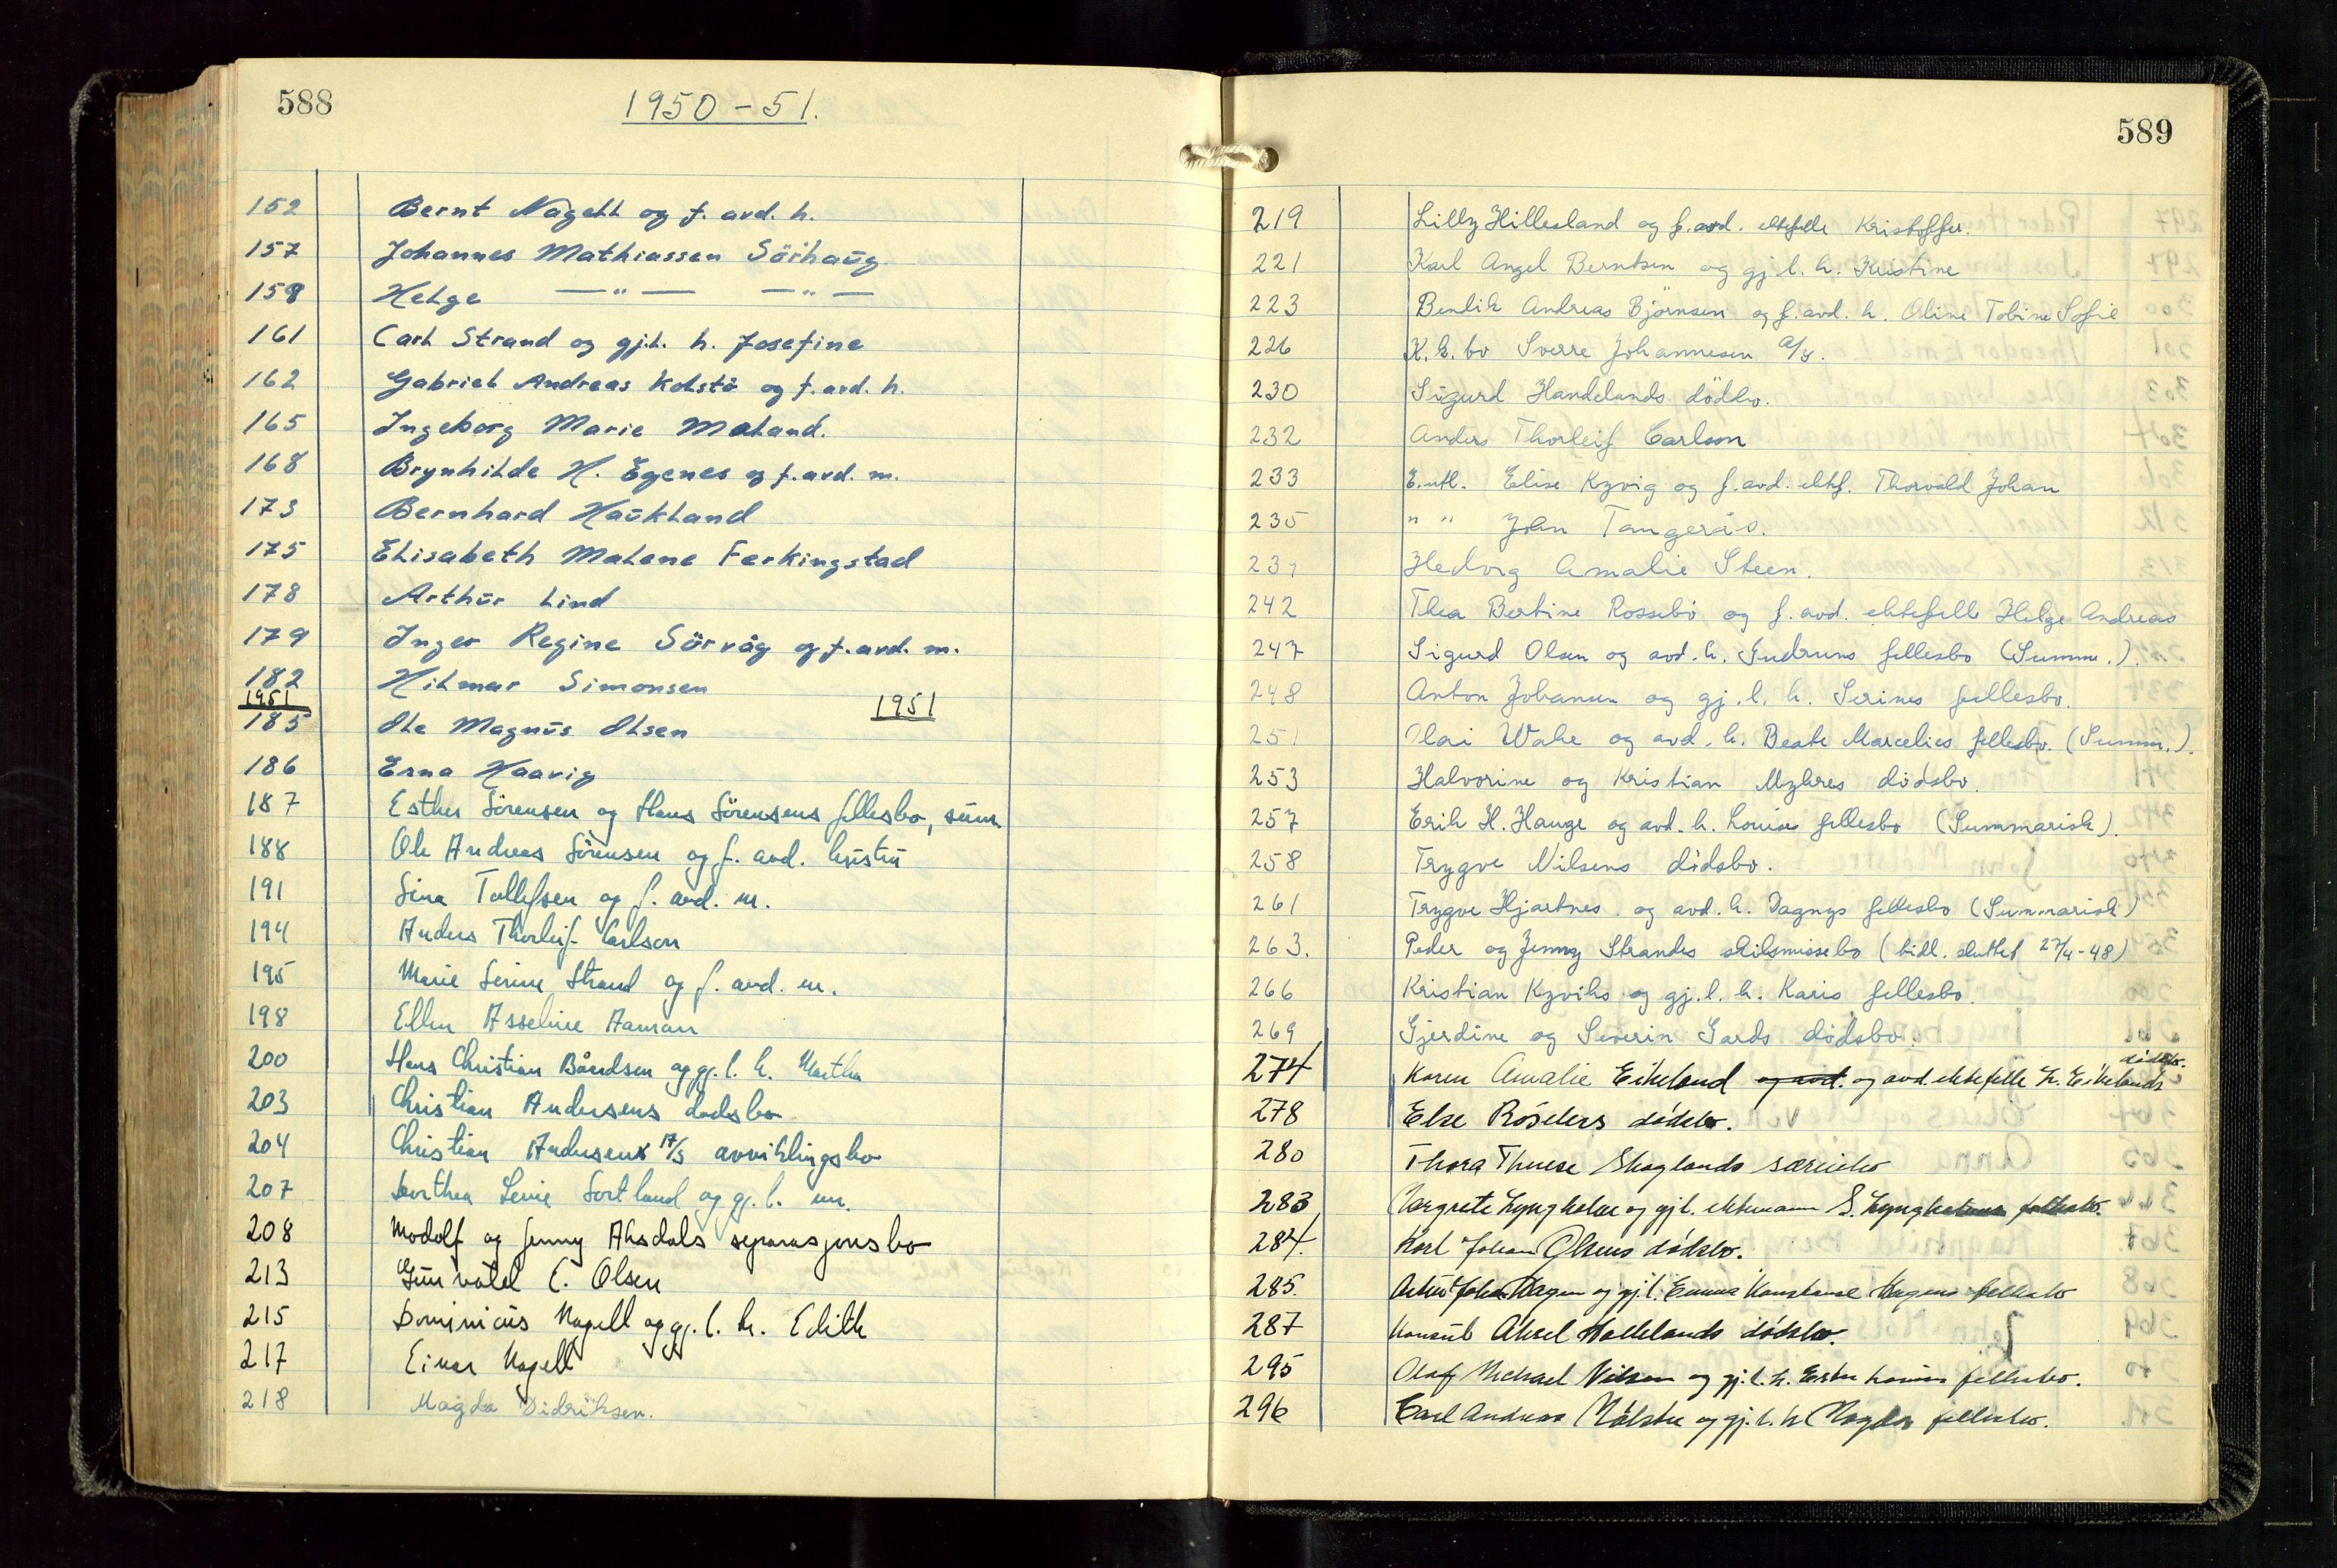 588
1950 - 51.
152 Bernt Nagell og f. avd. h.
157 Johannes Mathiassen Sörhaug
159 Helge — " — — " —
161 Carl Strand og gj.l. h. Josefine
162 Gabriel Andreas Kolstö og f. avd. h.
165 Ingeborg Marie Maland.
168 Brynhilde H. Egenes og f. avd. m.
173 Bernhard Haukland
175 Elisabeth Malene Ferkingstad
178 Arthur Lind
179 Inger Regine Sörvåg og f. avd. m.
182 Hilmar Simonsen
1951 1951
185 Ole Magnus Olsen
186 Erna Haavig
187 Esther Sörensen og Hans Sörensens fellesbo, sum.
188 Ole Andreas Sörensen og f. avd. hustru
191 Sina Tollefsen og f. avd. m.
194 Anders Thorleif Carlson
195 Marie Serine Strand og f. avd. m.
198 Ellen Asseline Aaman
200 Hans Christian Bårdsen og gj. l. h. Martha
203 Christian Andersens dødsbo
204 Christian Andersens A/S avviklingsbo
207 Dorthea Lenie Sortland og gj. l. m.
208 Modolf og Jenny Aksdals separasjonsbo
213 Gunvald C. Olsen
215 Dominicus Nagell og gj. l. h. Edith
217 Einar Nagell
218 Magda Didriksen.
589
219 Lilly Hillesland og f. avd. ektefelle Kristoffer.
221 Karl Angel Berntsen og gj. l. h. Kristine
223 Bendik Andreas Björnsen og f. avd. h. Oline Tobine Sofie
226 K. k. bo Sverre Johannesen A/S.
230 Sigurd Handelands dödsbo.
232 Anders Thorleif Carlson
233 E. utl. Elise Kyvig og f. avd. ektf. Thorvald Johan
235 " " John Tangerås.
237 Hedvig Amalie Steen.
242 Thea Bertine Rossebö og f. avd. ektefelle Helge Andreas
247 Sigurd Olsen og avd. h. Gudruns fellesbo (Summ.).
248 Anton Johansen og gj. l. h. Serines fellesbo.
251 Olai Wake og avd. h. Beate Marcelies fellesbo. (Summ.).
253 Halvorine og Kristian Myhres dödsbo.
257 Erik H. Hauge og avd. h. Louises fellesbo (Summarisk).
258 Trygve Nilsens dödsbo.
261 Trygve Hjartnes. og avd. h. Dagnys fellesbo (Summarisk)
263. Peder og Jenny Strandes skilsmissebo (bidl. sluttet 27/4-48)
266 Kristian Kyviks og gj. l. h. Karis fellesbo.
269 Gjerdine og Severin Gards dødsbo.
274 Karen Amalie Eikeland og avd. og avd. ektefelle H. Eikelands dødsbo.
278 Else Röselers dödsbo.
280 Thora Therese Skoglands særeiebo
283 Margrete Lyngholm og gj l. ektemann S. Lyngholms fellesbo.
284. Karl Johan Olsens dödsbo.
285. Johan Hagen og gj. l. Emma Konstanse Hagens fellesbo
287 Konsul Aksel Hallelands dödsbo.
295 Olaf Michael Nilsen og gj. l. h. Ester fellesbo.
296 Carl Andreas Mölstre og gj. l. h Magdas fellesbo.